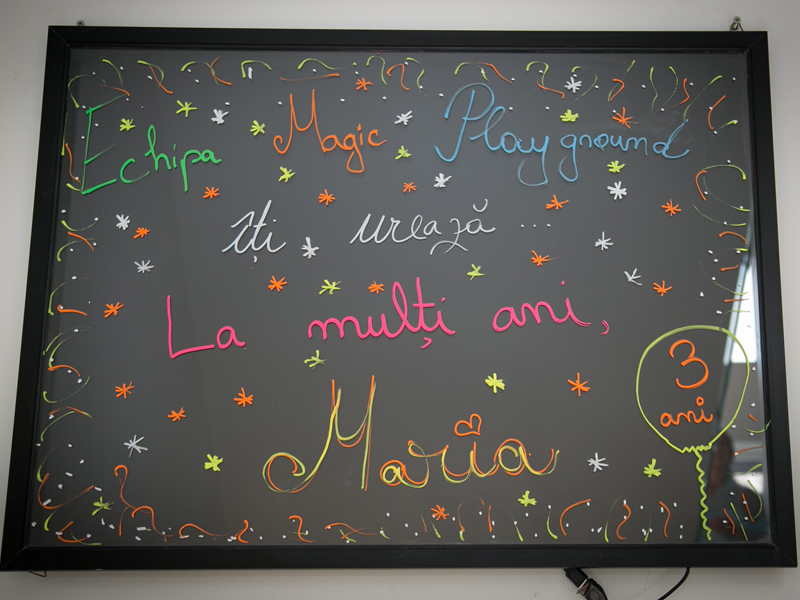 Echipa Magic Playground
îți urează ...
La mulți ani,
Maria
3
ani